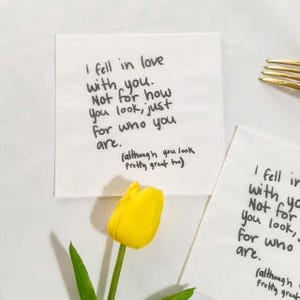 I fell in love
with you.
Not for how
you look, just
for who you
are.
(although you look
pretty great too)
I fell in
with yo
Not for
you look,
for who
are.
(although
pretty great